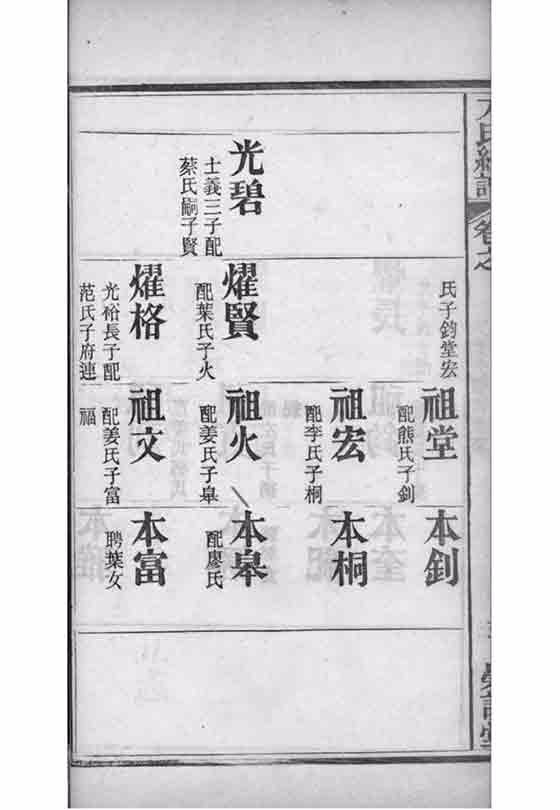 卷之
光碧
士義三子配
蔡氏嗣子賢
氏子鈞堂宏
耀賢
配葉氏子火
耀格
光裕長子配
范氏子府連
祖堂
配熊氏子釗
祖宏
配李氏子桐
祖火
配姜氏子皋
祖文
配姜氏子富
福
本釗
本桐
本皋
配廖氏
本富
聘葉女